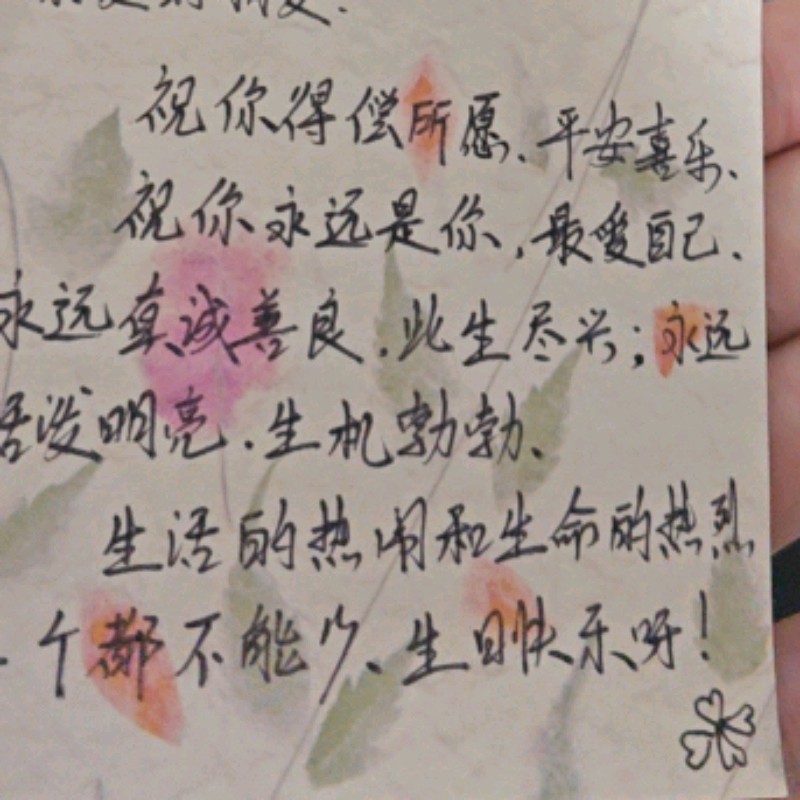 祝你得偿所愿、平安喜乐、
祝你永远是你,最爱自己.
永远真诚善良.此生尽兴;永远
活泼明亮.生机勃勃、
生活的热闹和生命的热烈
一个都不能少、生日快乐呀!